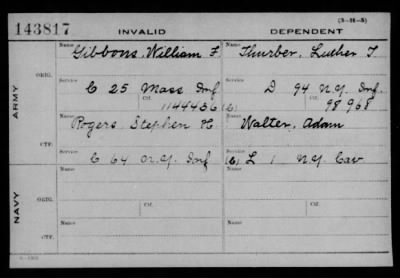 (3-H-8)
143817 INVALID DEPENDENT
Name Name
Gibbons, William F. Thurber, Luther T
ORIG. Service Service
C 25 Mass Inf D 94 N.Y. Inf.
Ctf. Ctf.
1144436 (2) 98968
ARMY
Name Name
Rogers Stephen H. Walter, Adam
CTF. Service Service
C 64 N.Y. Inf (6) L 1 N.Y. Cav
Name Name
ORIG.
Service Ctf. Service Ctf.
NAVY
Name Name
CTF.
Service Service